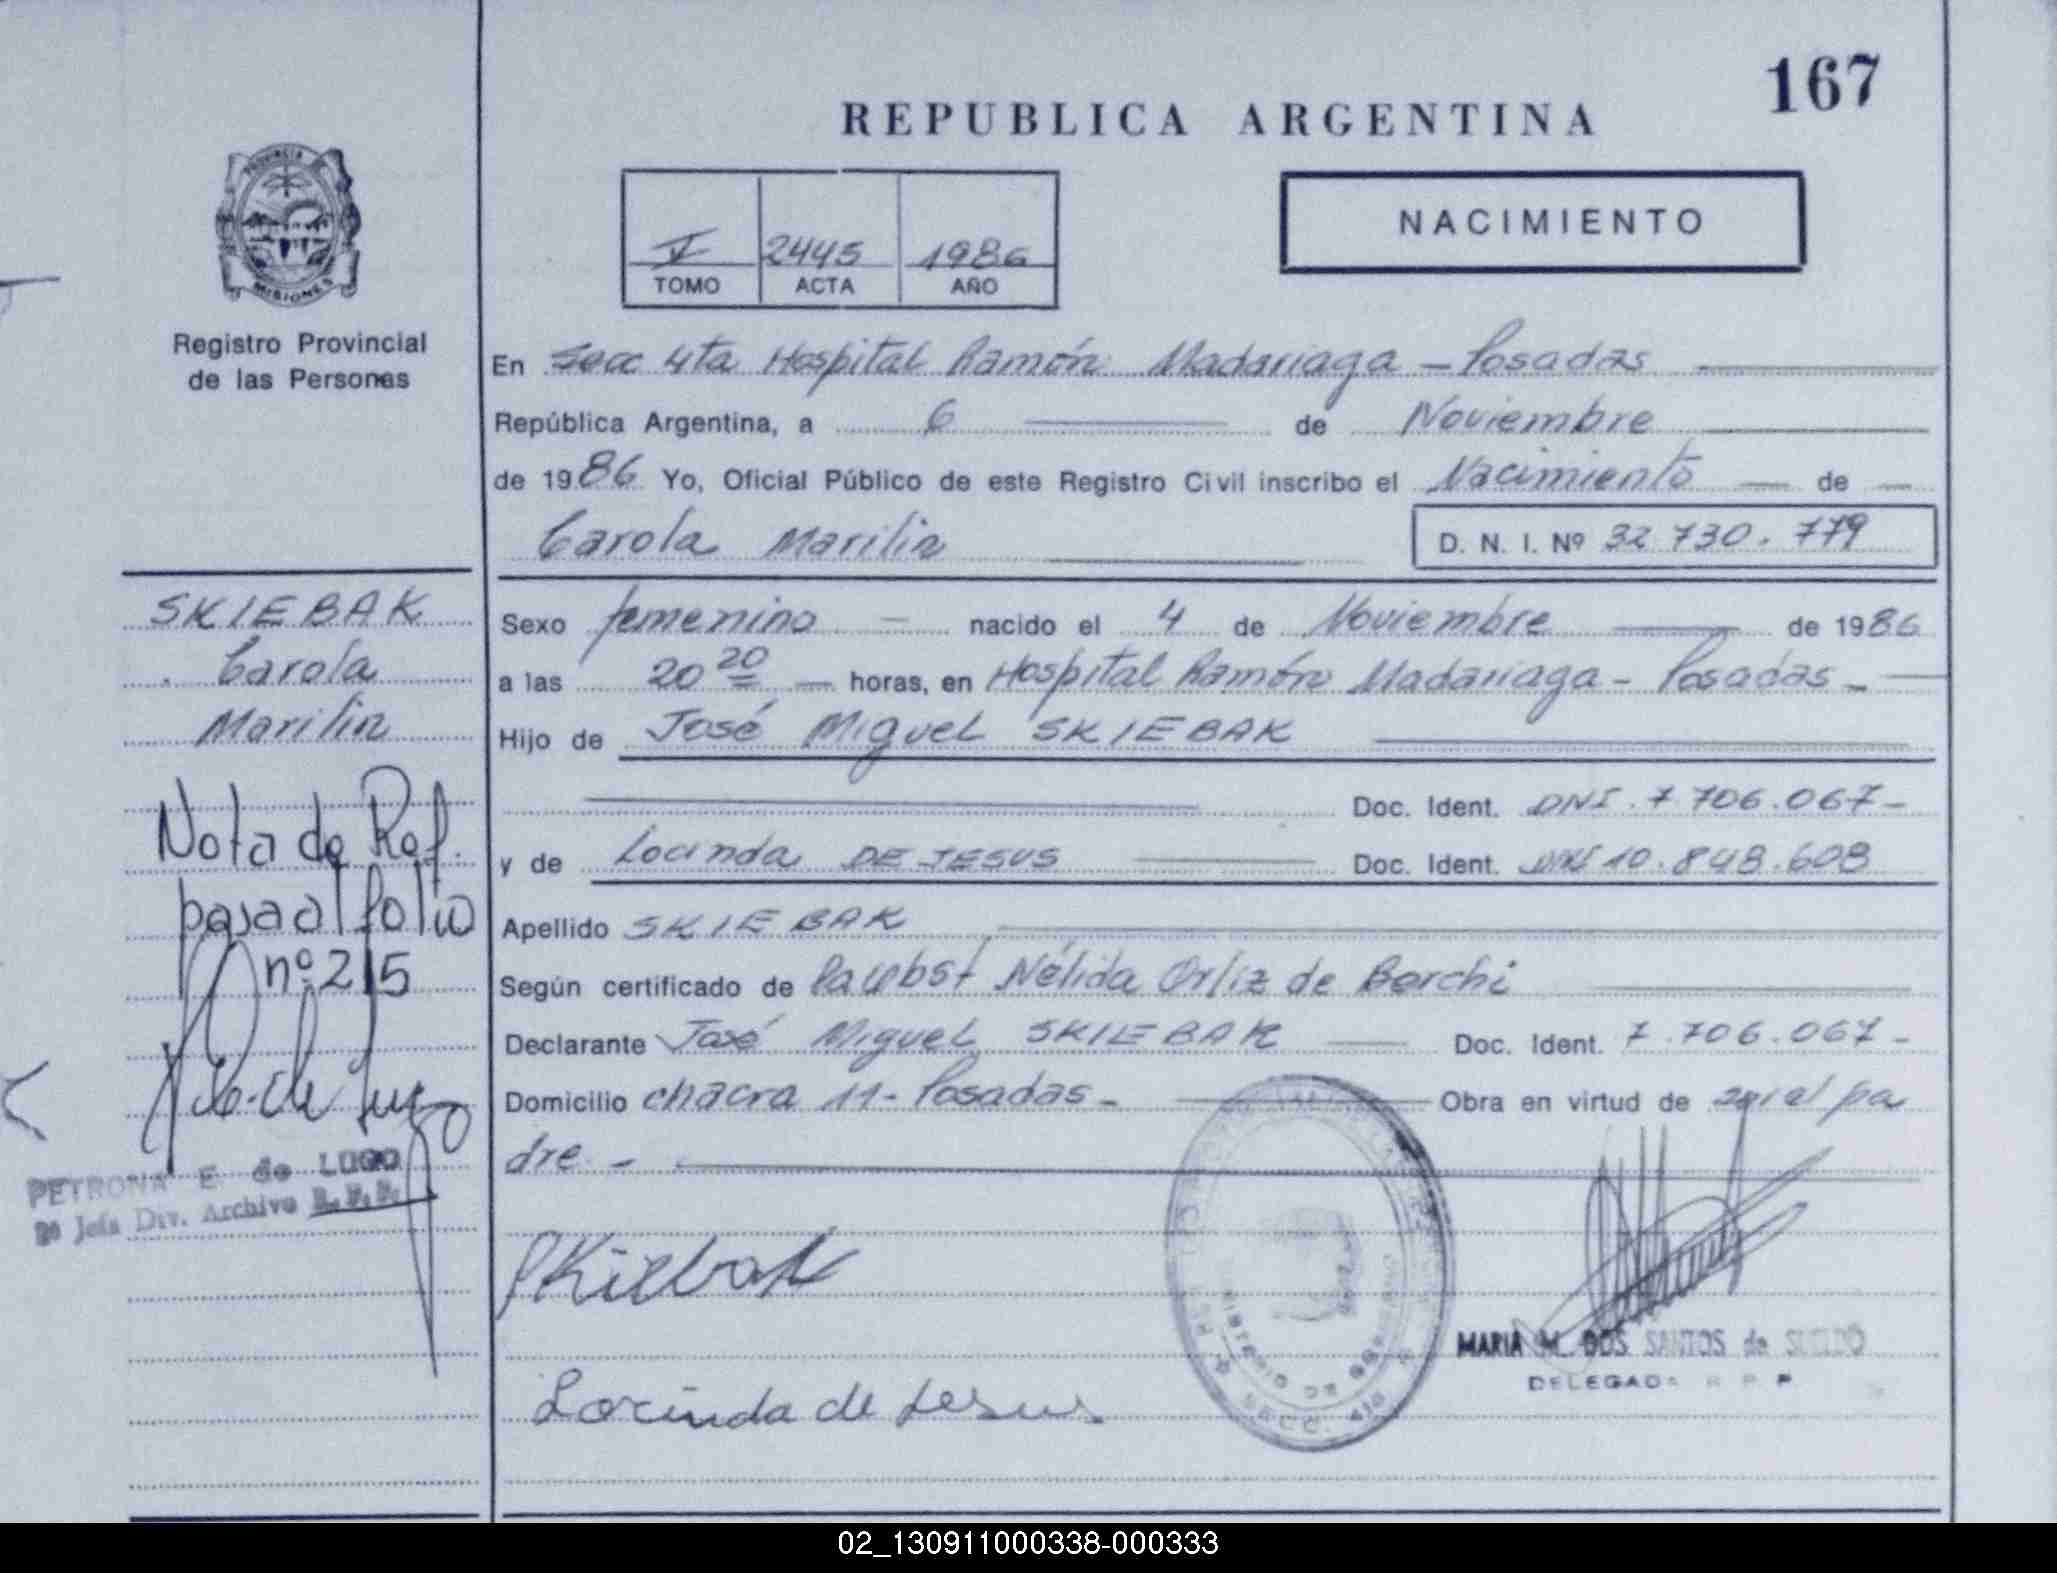 167
REPUBLICA ARGENTINA
NACIMIENTO
V 2445 1986
TOMO ACTA AÑO
PROVINCIA
MISIONES
Registro Provincial
de las Personas
En Secc 4ta Hospital Ramón Madariaga - Posadas
República Argentina, a 6 de Noviembre
de 1986 Yo, Oficial Público de este Registro Civil inscribo el Nacimiento de
Carola Marilin
D. N. I. Nº 32 730.779
SKIEBAK
Carola
Marilin
Nota de Ref.
pasa al folio
nº 215
PETRONA E de LUGO
Jefa Div. Archivo R.P.P.
Sexo femenino nacido el 4 de Noviembre de 1986
a las 20 20 horas, en Hospital Ramón Madariaga - Posadas -
Hijo de José Miguel SKIEBAK
Doc. Ident. DNI. 7 706.067-
y de Lorinda DE JESUS Doc. Ident. DNI 10.848.608
Apellido SKIEBAK
Según certificado de Nélida Ortiz de Borchi
Declarante José Miguel SKIEBAK Doc. Ident. 7.706.067-
Domicilio chacra 11- Posadas - Obra en virtud de ser el pa
dre -
Skiebak
Lorinda de Jesus
MINISTERIO DE GOBIERNO
SECC. 4ta
MARIA M. DOS SANTOS de
DELEGADA R P P
02_130911000338-000333